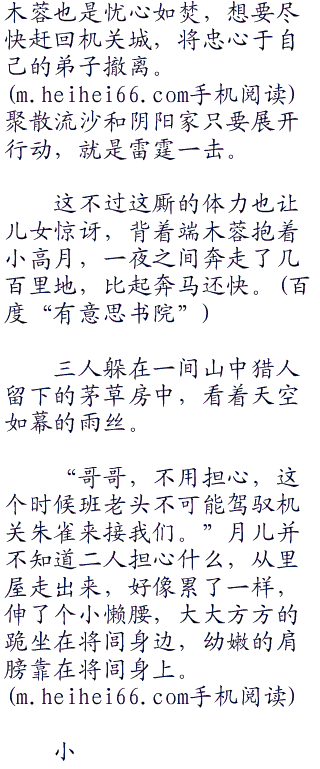 木蓉也是忧心如焚，想要尽
快赶回机关城，将忠心于自
己的弟子撤离。
(m.heihei66.com手机阅读)
聚散流沙和阴阳家只要展开
行动，就是雷霆一击。
这不过这厮的体力也让
儿女惊讶，背着端木蓉抱着
小高月，一夜之间奔走了几
百里地，比起奔马还快。(百
度“有意思书院”)
三人躲在一间山中猎人
留下的茅草房中，看着天空
如幕的雨丝。
“哥哥，不用担心，这
个时候班老头不可能驾驭机
关朱雀来接我们。”月儿并
不知道二人担心什么，从里
屋走出来，好像累了一样，
伸了个小懒腰，大大方方的
跪坐在将闾身边，幼嫩的肩
膀靠在将闾身上。
(m.heihei66.com手机阅读)
小